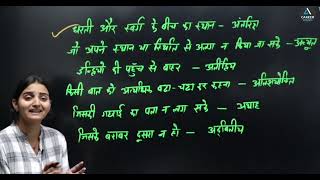 धरती और स्वर्ग के बीच का स्थान - अंतरिक्ष
जो अपने स्थान या स्थिति से अलग न किया जा सके - अच्युत
इन्द्रियों की पहुँच से बाहर - अतीन्द्रिय
किसी बात को अत्यधिक बढ़ा-चढ़ा कर कहना - अतिशयोक्ति
जिसकी गहराई का पता न लग सके - अथाह
जिसके बराबर दूसरा न हो - अद्वितीय
CAREER